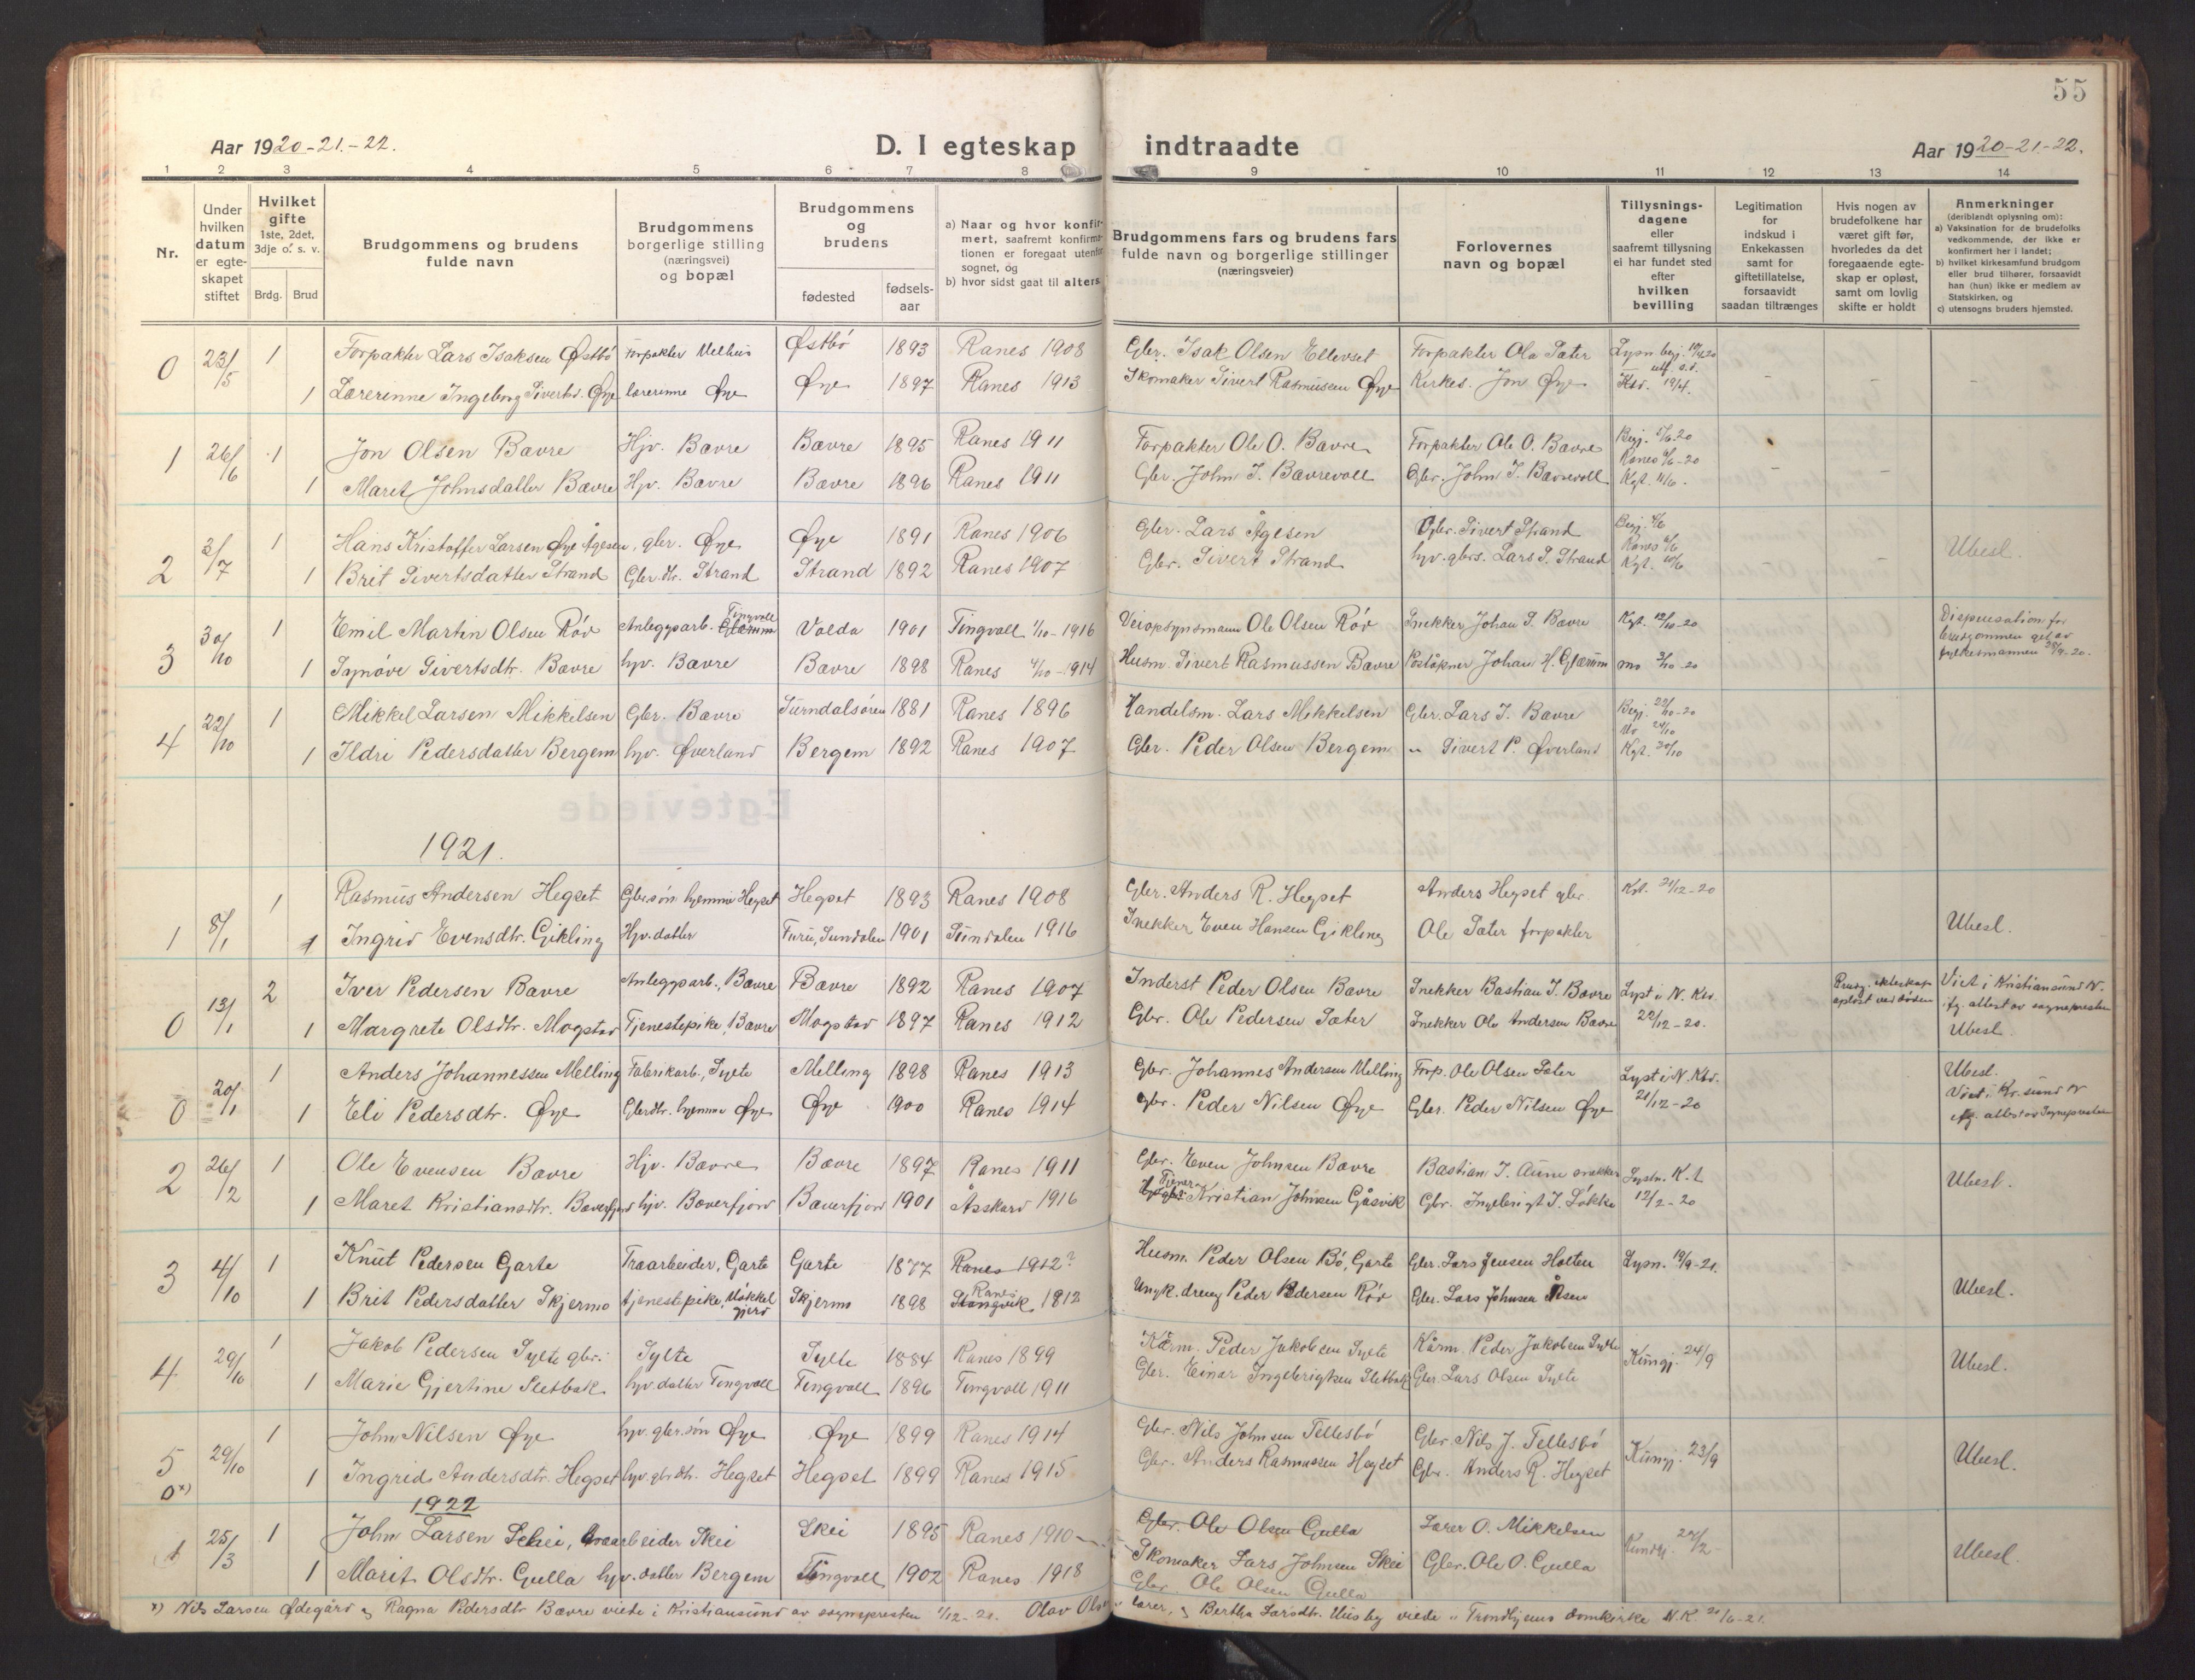 55
Aar 1920-21.-22.
D. I egteskap indtraadte
Aar 1920-21.-22.
1 2 3 4 5 6 7 8 9 10 11 12 13 14
Nr.
Under hvilken datum er egteskapet stiftet
Hvilket gifte 1ste, 2det, 3dje o. s. v.
Brdg. Brud
Brudgommens og brudens fulde navn
Brudgommens borgerlige stilling (næringsvei) og bopæl
Brudgommens og brudens
fødested
fødselsaar
a) Naar og hvor konfirmert, saafremt konfirmationen er foregaat utenfor sognet, og
b) hvor sidst gaat til alters
Brudgommens fars og brudens fars fulde navn og borgerlige stillinger (næringsveier)
Forlovernes navn og bopæl
Tillysningsdagene eller saafremt tillysning ei har fundet sted efter hvilken bevilling
Legitimation for indskud i Enkekassen samt for giftetillatelse, forsaavidt saadan tiltrænges
Hvis nogen av brudefolkene har været gift før, hvorledes da det foregaaende egteskap er opløst, samt om lovlig skifte er holdt
Anmerkninger (deriblandt oplysning om):
a) Vaksination for de brudefolks vedkommende, der ikke er konfirmert her i landet;
b) hvilket kirkesamfund brudgom eller brud tilhører, forsaavidt han (hun) ikke er medlem av Statskirken, og
c) utensogns bruders hjemsted.
0 23/5 1 Forpakter Lars Isaksen Østbö Forpakter Melhus Østbö 1893 Ranes 1908 Gbr. Isak Olsen Ellevset Forpakter Ola Sæter Lysn begj.
1 Lærerinne Ingeborg Sivertsd. Øye lærerinne Øye Øye 1897 Ranes 1913 Skomaker Sivert Rasmusen Øye Kirkes. Jon Øye 19/4.
1 26/6 1 Jon Olsen Bævre Hjv. Bævre Bævre 1895 Ranes 1911 Forpakter Ole O. Bævre Forpakter Ole O. Bævre Begj. 5/6-20
1 Maret Johnsdatter Bævre Hjv. Bævre Bævre 1896 Ranes 1911 Gbr. John I. Bævrevoll Gbr. John I. Bævrevoll Ranes 6/6-20 Kgt. 11/6.
2 3/7 1 Hans Kristoffer Larsen Øye Ågesen, gbr. Øye Øye 1891 Ranes 1906 Gbr. Lars Ågesen Gbr. Sivert Strand Begj. Ranes
1 Brit Sivertsdatter Strand Gbr.dtr. Strand Strand 1892 Ranes 1907 Gbr. Sivert Strand hjv. gbrs. Lars S. Strand Kgt. 10/6 Ubesl.
3 30/10 1 Emil Martin Olsen Röv Anleggsarb. Tingvoll Glærum Volda 1901 Tingvoll 1/10-1916 Veiopsynsmann Ole Olsen Röv Snekker Johan I. Bævre Kgt. 12/10-20 Dispensation for brudgommen git av fylkesmannen 28/9-20.
1 Synöve Sivertsdtr. Bævre hjv. Bævre Bævre 1898 Ranes 4/10-1914 Husm. Sivert Rasmussen Bævre Poståpner Johan H. Glærum Mo 3/10-20
4 22/10 1 Mikkel Larsen Mikkelsen Gbr. Bævre Surndalsören 1881 Ranes 1896 Handelsm. Lars Mikkelsen Gbr. Lars I. Bævre Begj. Mo 24/10
1 Ildri Pedersdatter Bergem hjv. Øverland Bergem 1892 Ranes 1907 Gbr. Peder Olsen Bergem " Sivert P. Øverland Kgt.
1921.
1 8/1 1 Rasmus Andersen Hegset Gbrsön hjemme Hegset Hegset 1893 Ranes 1908 Gbr. Anders R. Hegset Anders Hegset gbr Kgt. 24/12-20
1 Ingrid Evensdtr. Gikling Hjv. datter Furu, Sundalen 1901 Sundalen 1916 Snekker Even Hansen Gikling Ole Sæter forpakter Ubesl.
0 13/1 2 Iver Pedersen Bævre Anleggsarb., Bævre Bævre 1892 Ranes 1907 Inderst Peder Olsen Bævre Snekker Bastian I. Bævre Lyst i N. Ktr. Brudg. ekteskap oplöst ved döden Viet i Kristiansund N.
1 Margrete Olsdtr. Mogstad Tjenestepike, Bævre Mogstad 1897 Ranes 1912 Gbr. Ole Pedersen Sæter Snekker Ole Andersen Bævre 20/12-20. ifg. attest av sognepresten Ubesl.
0 20/1 1 Anders Johannessen Melling Fabrikarb., Sylte Melling 1898 Ranes 1913 Gbr. Johannes Andersen Melling Forp. Ole Olsen Sæter Lyst i N. Ktr. Ubesl.
1 Eli Pedersdtr. Øye Gbrdtr. hjemme Øye Øye 1900 Ranes 1914 Gbr. Peder Nilsen Øye Gbr. Peder Nilsen Øye 21/12-20 Viet i Kr.sund N ifg. attest av Sognepresten
2 26/2 1 Ole Evensen Bævre Hjv. Bævre Bævre 1897 Ranes 1911 Gbr. Even Johnsen Bævre Bastian I. Aune snekker Lystn. K.t.
1 Maret Kristiansdtr. Bæverfjord hjv. Bæverfjord Bæverfjord 1901 Åsskard 1916 Kristian Johnsen Gåsvik Gbr. Ingebrigt I. Løkke 12/2-20 Ubesl.
3 4/10 1 Knut Pedersen Garte Træarbeider, Garte Garte 1877 Ranes 1912? Husm. Peder Olsen Bö, Garte Gbr. Lars Jensen Holten Lysn. 19/9-21.
1 Brit Pedersdatter Skjermo tjenestepike, Mökkelgjerd Skjermo 1898 Ranes Stangvik 1812 Ungk. dreng Peder Pedersen Röv Gbr. Lars Johnsen Åsen Ubesl.
4 29/10 1 Jakob Pedersen Sylte gbr. Sylte Sylte 1884 Ranes 1899 Kårm. Peder Jakobsen Sylte Kårm. Peder Jakobsen Sylte Kungj. 24/9
1 Marie Gjertine Sletbak hjv. datter Tingvoll Tingvoll 1896 Tingvoll 1911 Gbr. Einar Ingebrigtsen Sletbak Gbr. Lars Olsen Sylte Ubesl.
5 29/10 1 John Nilsen Øye hjv. gbr.sön Øye Øye 1899 Ranes 1914 Gbr. Nils Johnsen Tellesbö Gbr Nils J. Tellesbö Kungj. 23/9
1 Ingrid Andersdtr. Hegset hjv. gbrdtr. Hegset Hegset 1899 Ranes 1915 Gbr. Anders Rasmussen Hegset Gbr. Anders R. Hegset Ubesl.
0 x)
1922
1 25/3 1 John Larsen Schei, træarbeider Skei Skei 1895 Ranes 1910 Gbr. Ole Olsen Gulla Lærer O. Mikkelsen
Skomaker Lars Johnsen Skei
1 Marit Olsdtr. Gulla hjv. datter Bergem Tingvoll 1902 Ranes 1918 Gbr. Ole Olsen Gulla Gbr. Ole O. Gulla Ubesl.
x) Nils Larsen Ødegård og Ragna Pedersdtr Bævre viede i Kristiansund av sognepresten 1/12-21. Olav lærer, og Bertha Larsdtr. Husby viede i Trondhjems domkirke N.K. 21/6-21.
Egteviede